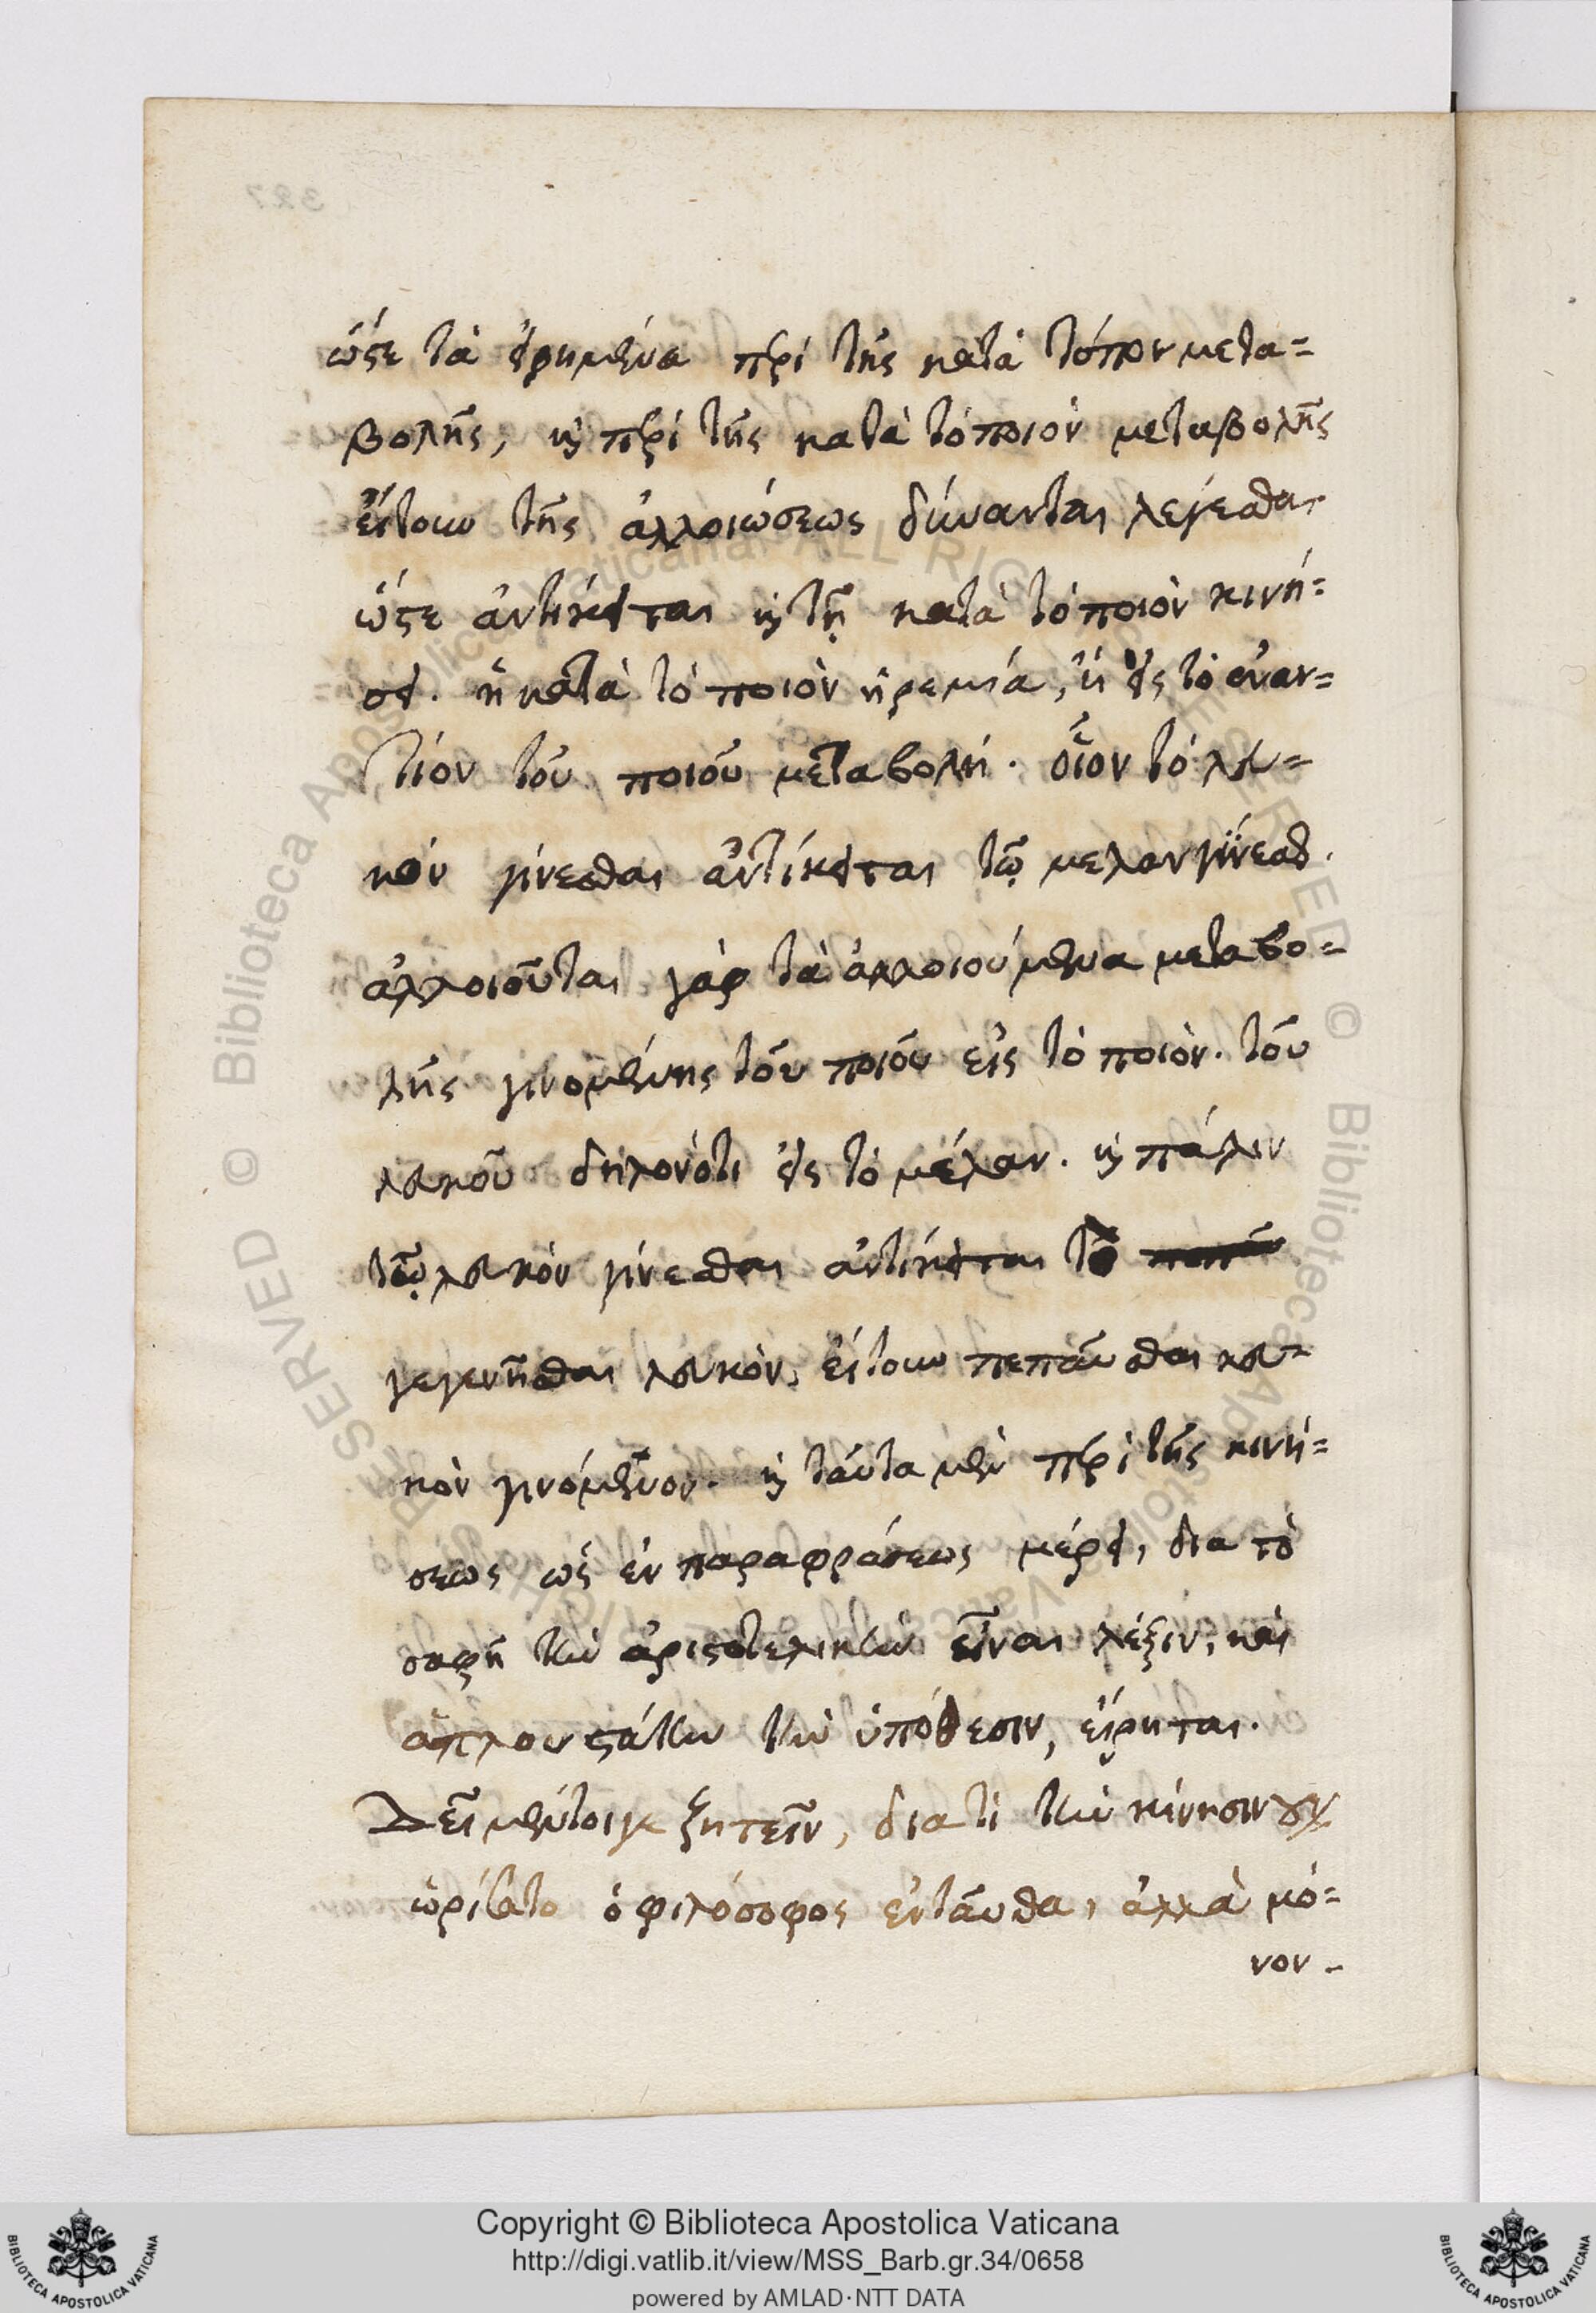 ὥστε τὰ εἰρημένα περὶ τῆς κατὰ τόπον μετα=
βολῆς, καὶ περὶ τῆς κατὰ τὸ ποιὸν μεταβολῆς
εἴτουν τῆς ἀλλοιώσεως δύνανται λέγεσθαι
ὥστε ἀντίκειται καὶ τῇ κατὰ τὸ ποιὸν κινή=
σει. ἡ κατὰ τὸ ποιὸν ἠρεμία, ἢ εἰς τὸ ἐναν=
τίον τοῦ ποιοῦ μεταβολή. οἷον τὸ λευ=
κὸν γίνεσθαι ἀντίκειται τῷ μέλαν γίνεσθαι.
ἀλλοιοῦται γὰρ τὰ ἀλλοιούμενα μεταβο=
λῆς γινομένης τοῦ ποιοῦ εἰς τὸ ποιὸν. τοῦ
λευκοῦ δηλονότι εἰς τὸ μέλαν. καὶ πάλιν
τῷ λευκὸν γίνεσθαι ἀντίκειται τὸ
γεγενῆσθαι λευκὸν, εἴτουν πεπαῦσθαι λευ=
κὸν γινόμενον. καὶ ταῦτα μὲν περὶ τῆς κινή=
σεως ὡς ἐν παραφράσεως μέρει, δια τὸ
σαφῆ τὴν ἀριστοτελικὴν εἶναι λέξιν, καὶ
ἁπλουστάτην τὴν ὑπόθεσιν, εἴρηται.
Δεῖ μέντοιγε ζητεῖν, διατί τὴν κίνησιν οὐχ
ὡρίσατο ὁ φιλόσοφος ἐνταῦθα, ἀλλὰ μό=
νον -
327
Copyright © Biblioteca Apostolica Vaticana
http://digi.vatlib.it/view/MSS_Barb.gr.34/0658
powered by AMLAD·NTT DATA